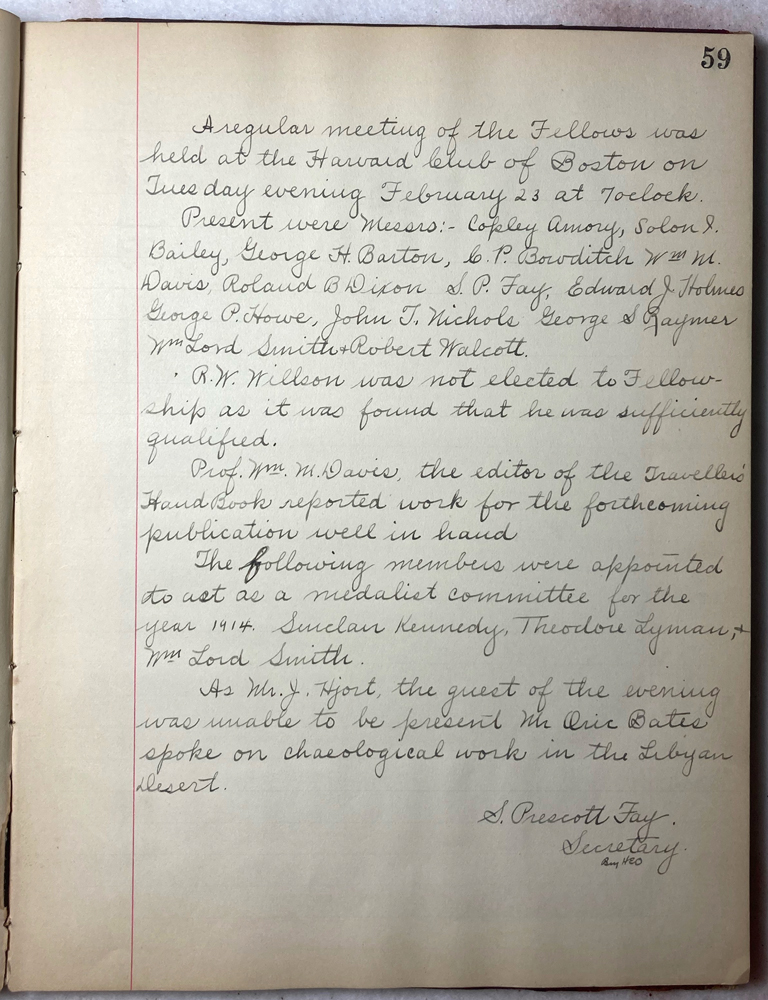 59
A regular meeting of the Fellows was
held at the Harvard Club of Boston on
Tuesday evening February 23 at 7oclock.
Present were Messrs:- Copley Amory, Solon I.
Bailey, George H. Barton, C. P. Bowditch Wm M.
Davis, Roland B Dixon S. P. Fay, Edward J Holmes
George P. Howe, John T. Nichols George S Raymer
Wm Lord Smith + Robert Walcott.
R.W. Willson was not elected to Fellow-
ship as it was found that he was sufficiently
qualified.
Prof. Wm. M. Davis, the editor of the Travellers'
Hand Book reported work for the forthcoming
publication well in hand
The following members were appointed
to act as a medalist committee for the
year 1914. Sinclair Kennedy, Theodore Lyman, +
Wm Lord Smith.
As Mr. J. Hjort, the guest of the evening
was unable to be present Mr Oric Bates
spoke on chaeological work in the Libyan
Desert.
S. Prescott Fay.
Secretary.